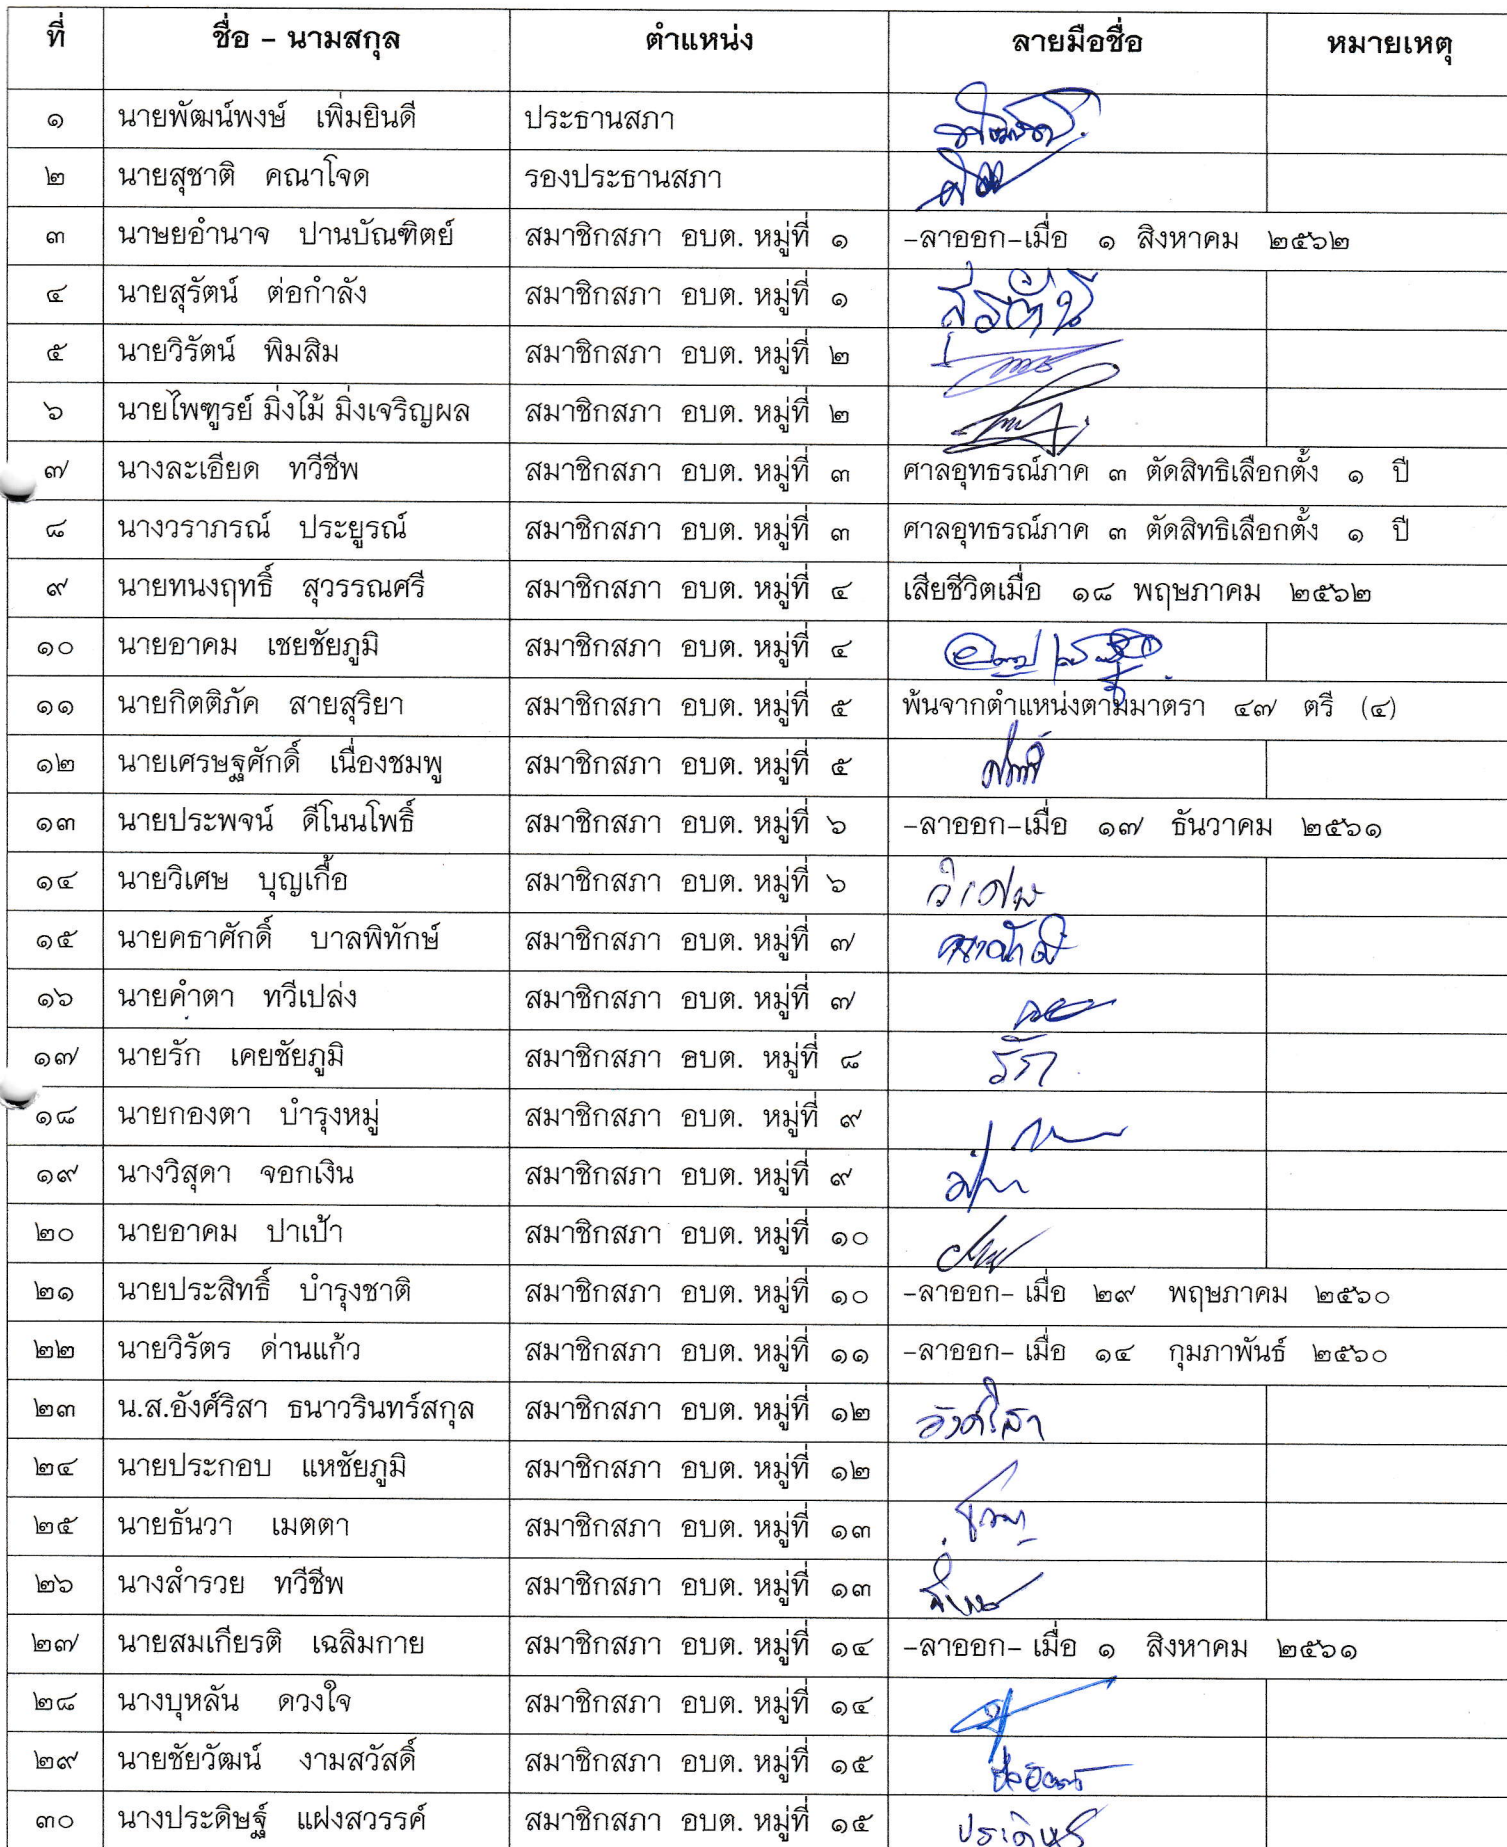 ที่ ชื่อ - นามสกุล ตำแหน่ง ลายมือชื่อ หมายเหตุ
๑ นายพัฒน์พงษ์ เพิ่มยินดี ประธานสภา
๒ นายสุชาติ คณาโจด รองประธานสภา
๓ นาษยอำนาจ ปานบัณฑิตย์ สมาชิกสภา อบต. หมู่ที่ ๑ -ลาออก-เมื่อ ๑ สิงหาคม ๒๕๖๒
๔ นายสุรัตน์ ต่อกำลัง สมาชิกสภา อบต. หมู่ที่ ๑ สุรัตน์
๕ นายวิรัตน์ พิมสิม สมาชิกสภา อบต. หมู่ที่ ๒
๖ นายไพฑูรย์ มิ่งไม้ มิ่งเจริญผล สมาชิกสภา อบต. หมู่ที่ ๒
๗ นางละเอียด ทวีชีพ สมาชิกสภา อบต. หมู่ที่ ๓ ศาลอุทธรณ์ภาค ๓ ตัดสิทธิเลือกตั้ง ๑ ปี
๘ นางวราภรณ์ ประยูรณ์ สมาชิกสภา อบต. หมู่ที่ ๓ ศาลอุทธรณ์ภาค ๓ ตัดสิทธิเลือกตั้ง ๑ ปี
๙ นายทนงฤทธิ์ สุวรรณศรี สมาชิกสภา อบต. หมู่ที่ ๔ เสียชีวิตเมื่อ ๑๘ พฤษภาคม ๒๕๖๒
๑๐ นายอาคม เชยชัยภูมิ สมาชิกสภา อบต. หมู่ที่ ๔
๑๑ นายกิตติภัค สายสุริยา สมาชิกสภา อบต. หมู่ที่ ๕ พ้นจากตำแหน่งตามมาตรา ๔๗ ตรี (๔)
๑๒ นายเศรษฐศักดิ์ เนื่องชมพู สมาชิกสภา อบต. หมู่ที่ ๕
๑๓ นายประพจน์ ดีโนนโพธิ์ สมาชิกสภา อบต. หมู่ที่ ๖ -ลาออก-เมื่อ ๑๗ ธันวาคม ๒๕๖๑
๑๔ นายวิเศษ บุญเกื้อ สมาชิกสภา อบต. หมู่ที่ ๖ วิเศษ
๑๕ นายคธาศักดิ์ บาลพิทักษ์ สมาชิกสภา อบต. หมู่ที่ ๗
๑๖ นายคำตา ทวีเปล่ง สมาชิกสภา อบต. หมู่ที่ ๗
๑๗ นายรัก เคยชัยภูมิ สมาชิกสภา อบต. หมู่ที่ ๘ รัก
๑๘ นายกองตา บำรุงหมู่ สมาชิกสภา อบต. หมู่ที่ ๙
๑๙ นางวิสุดา จอกเงิน สมาชิกสภา อบต. หมู่ที่ ๙
๒๐ นายอาคม ปาเป้า สมาชิกสภา อบต. หมู่ที่ ๑๐
๒๑ นายประสิทธิ์ บำรุงชาติ สมาชิกสภา อบต. หมู่ที่ ๑๐ -ลาออก- เมื่อ ๒๙ พฤษภาคม ๒๕๖๐
๒๒ นายวิรัตร ด่านแก้ว สมาชิกสภา อบต. หมู่ที่ ๑๑ -ลาออก- เมื่อ ๑๔ กุมภาพันธ์ ๒๕๖๐
๒๓ น.ส.อังศ์ริสา ธนาวรินทร์สกุล สมาชิกสภา อบต. หมู่ที่ ๑๒ อังศ์ริสา
๒๔ นายประกอบ แหชัยภูมิ สมาชิกสภา อบต. หมู่ที่ ๑๒
๒๕ นายธันวา เมตตา สมาชิกสภา อบต. หมู่ที่ ๑๓
๒๖ นางสำรวย ทวีชีพ สมาชิกสภา อบต. หมู่ที่ ๑๓
๒๗ นายสมเกียรติ เฉลิมกาย สมาชิกสภา อบต. หมู่ที่ ๑๔ -ลาออก- เมื่อ ๑ สิงหาคม ๒๕๖๑
๒๘ นางบุหลัน ดวงใจ สมาชิกสภา อบต. หมู่ที่ ๑๔
๒๙ นายชัยวัฒน์ งามสวัสดิ์ สมาชิกสภา อบต. หมู่ที่ ๑๕
๓๐ นางประดิษฐ์ แฝงสวรรค์ สมาชิกสภา อบต. หมู่ที่ ๑๕ ประดิษฐ์